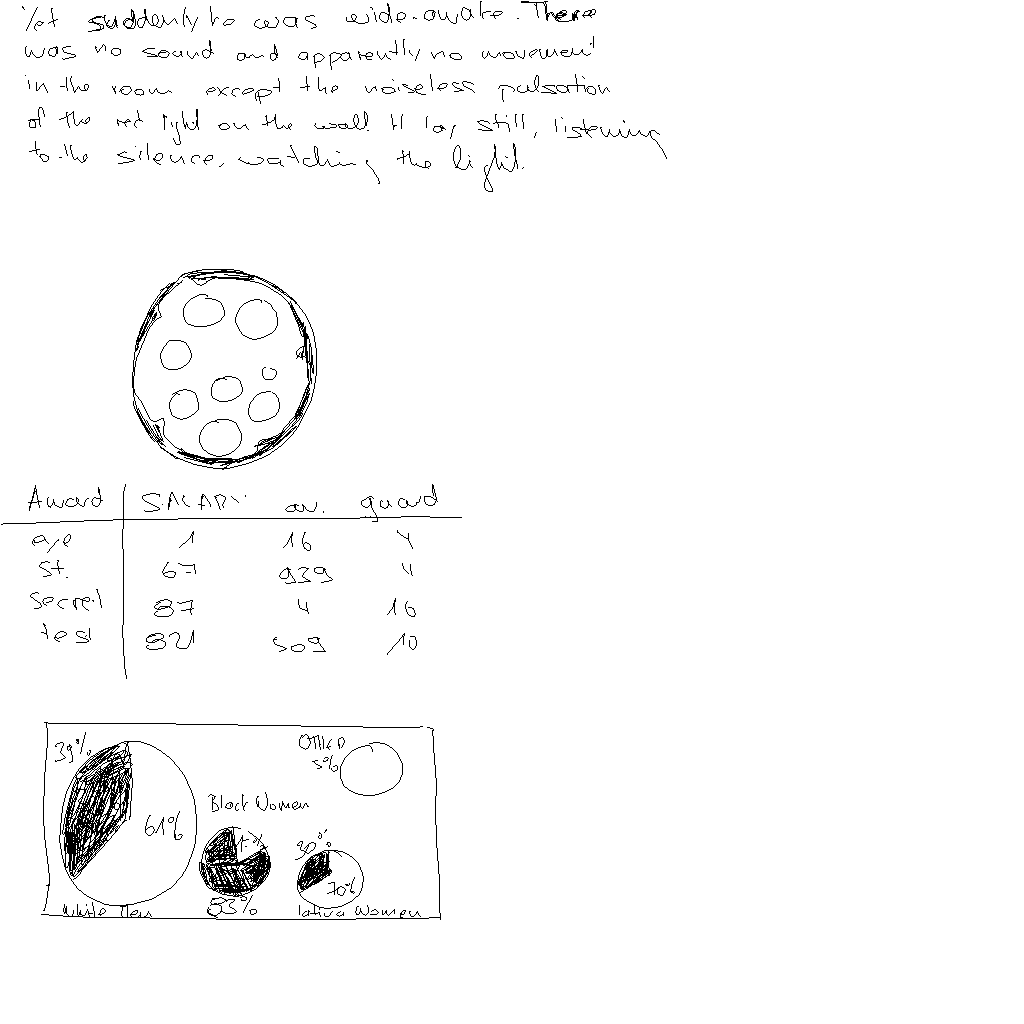 Yet suddenly he was wide-awake. There
was no sound and apparently no movement
in the room except the noiseless pulsation
of the red light on the wall. H lay still, listening
to the silence, watching the light.
Award SALARY av. guard
age 1 16 4
St. 67 939 4
Secret 87 4 16
test 821 509 10
39%
61%
White Men
Black Women
83%
Other
5%
30%
70%
lativa Women